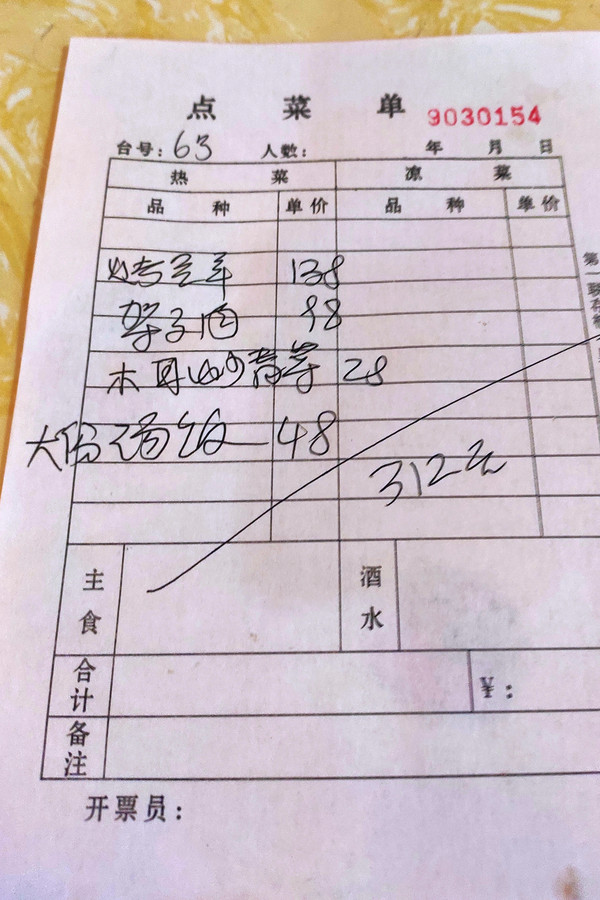 点 菜 单 9030154
台号: 63 人数: 年 月 日
热 菜 凉 菜
品 种 单价 品 种 单价
烤 138
架子肉 98
木耳炒青笋 28
大份汤饭 48
312元
主食 酒水
合计 ¥:
备注
开票员:
第一联存